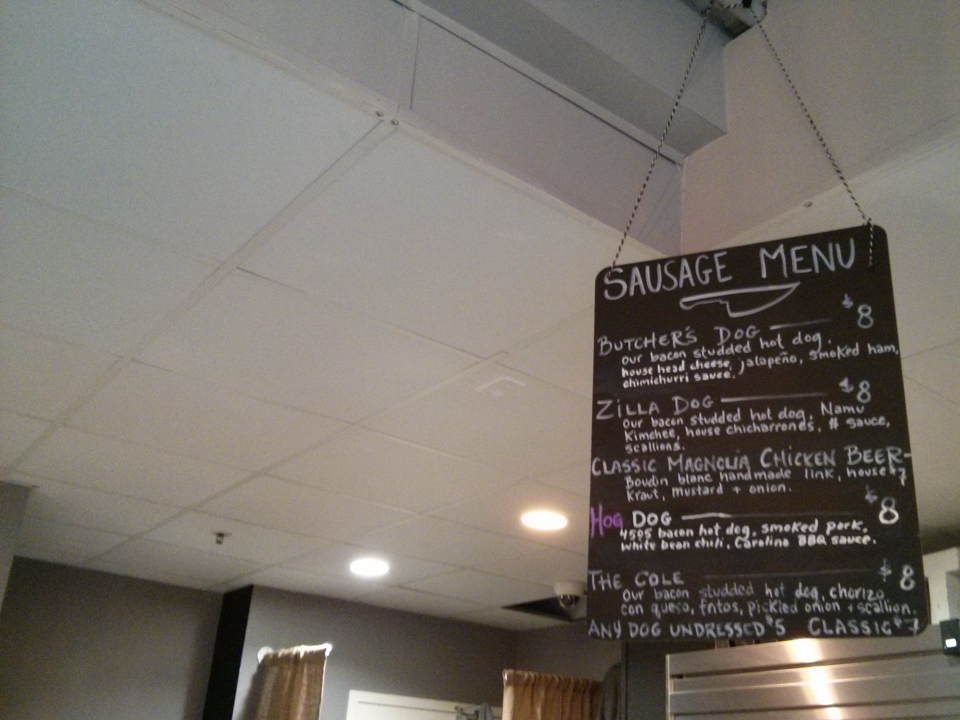 SAUSAGE MENU
BUTCHER'S DOG — $8
our bacon studded hot dog,
house head cheese, jalapeño, smoked ham,
chimichurri sauce.
ZILLA DOG — $8
our bacon studded hot dog, Namu
Kimchee, house chicharrones, # sauce,
scallions.
CLASSIC MAGNOLIA CHICKEN BEER-
Boudin blanc handmade link, house $7
kraut, mustard + onion.
HOG DOG — $8
4505 bacon hot dog, smoked pork,
white bean chili, Carolina BBQ sauce.
THE COLE — $8
our bacon studded hot dog, chorizo
con queso, fritos, pickled onion + scallion.
ANY DOG UNDRESSED $5 CLASSIC $7